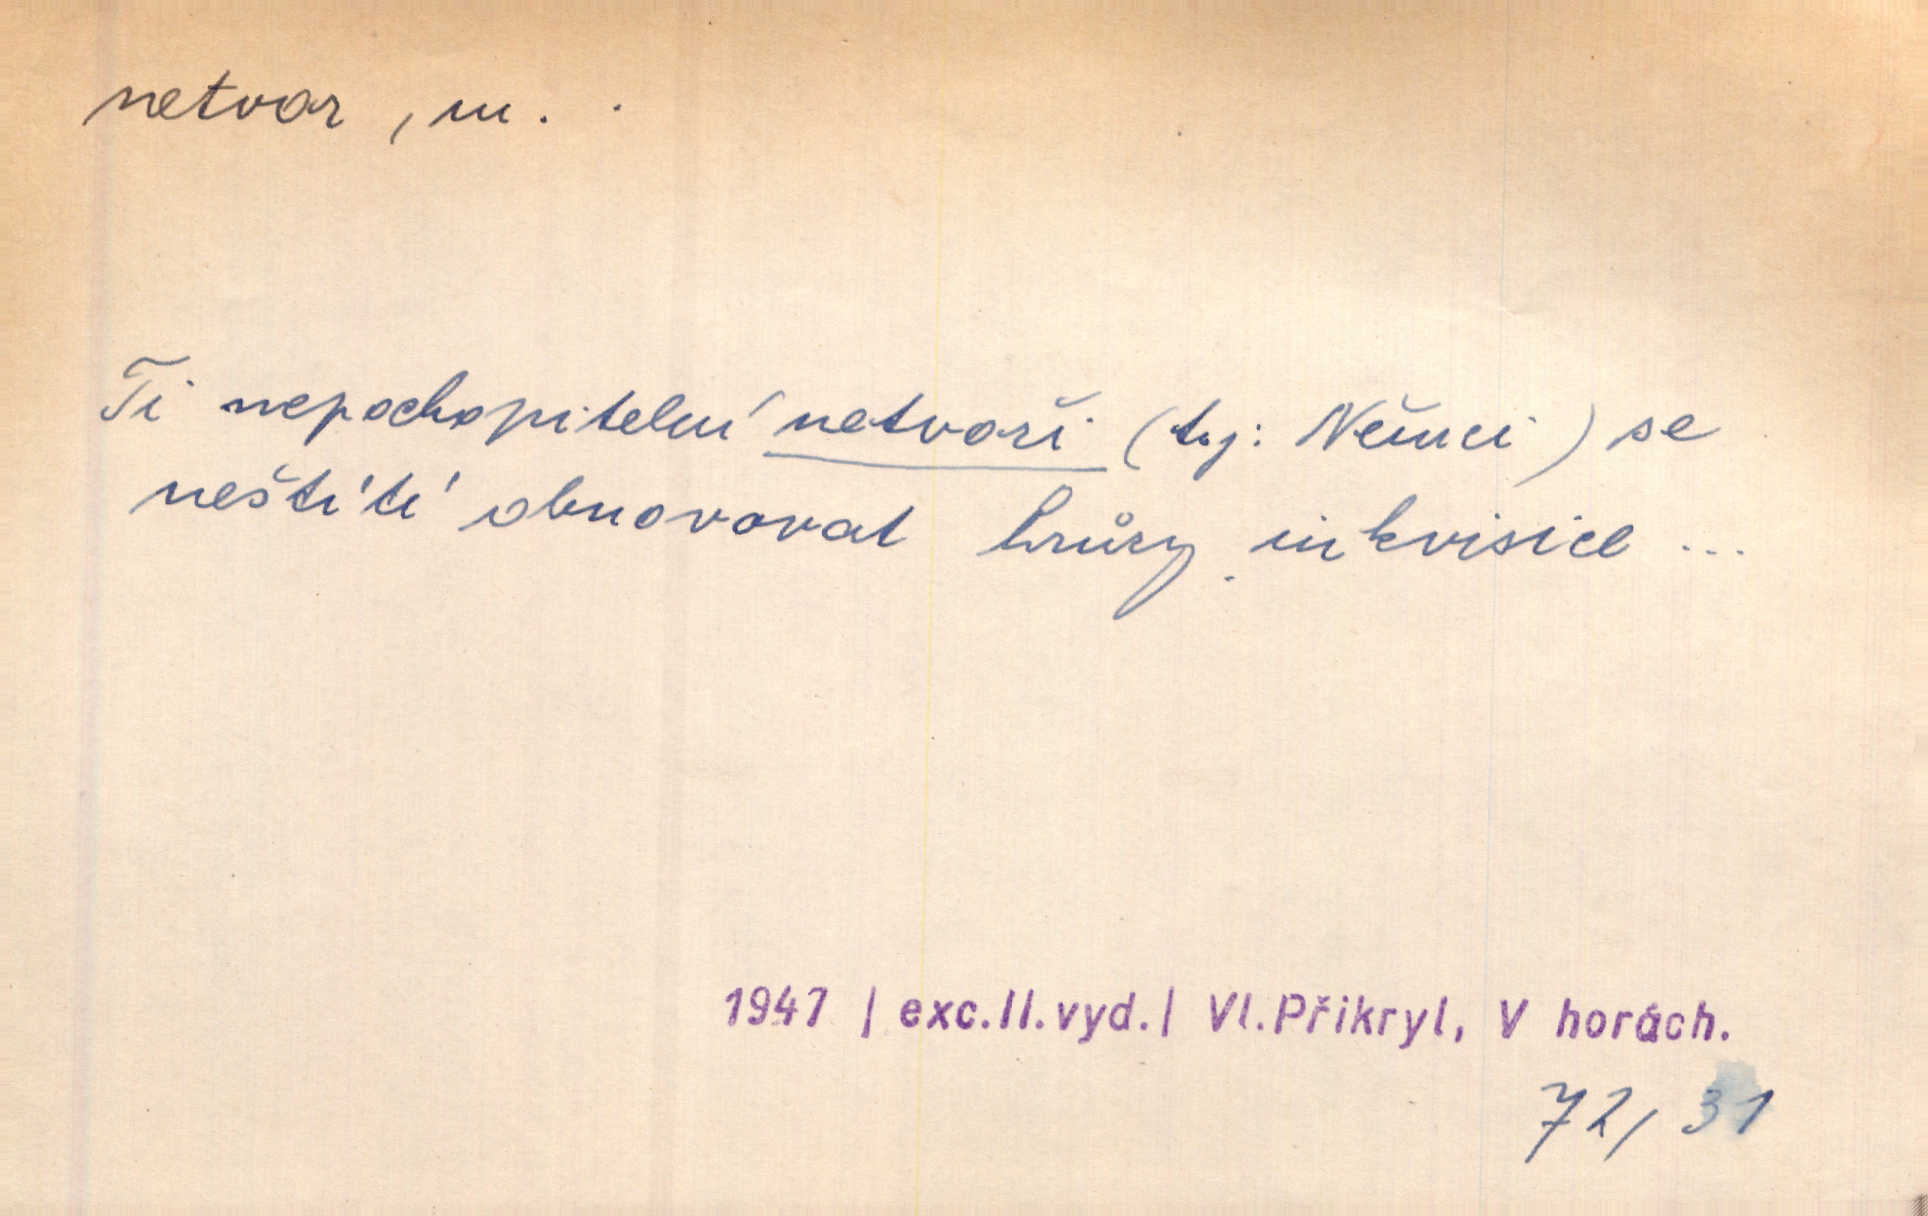 netvor, m.
Ti nepochopitelní netvoři (tj: Němci) se
neštítí obnovovat hrůzy inkvisice ...
1947 | exc.II.vyd.| Vl.Přikryl, V horách.
72, 31